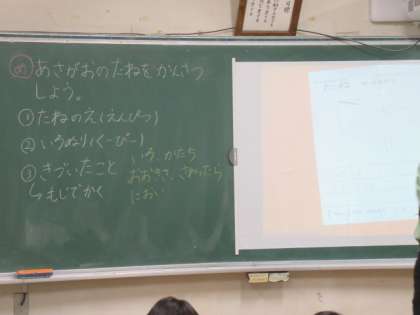 め あさがおのたねをかんさつ
しよう。
① たねのえ(えんぴつ)
② いろぬり(くーぴー)
③ きづいたこと
↳ もじでかく
いろ、かたち
おおきさ、さわったら
におい